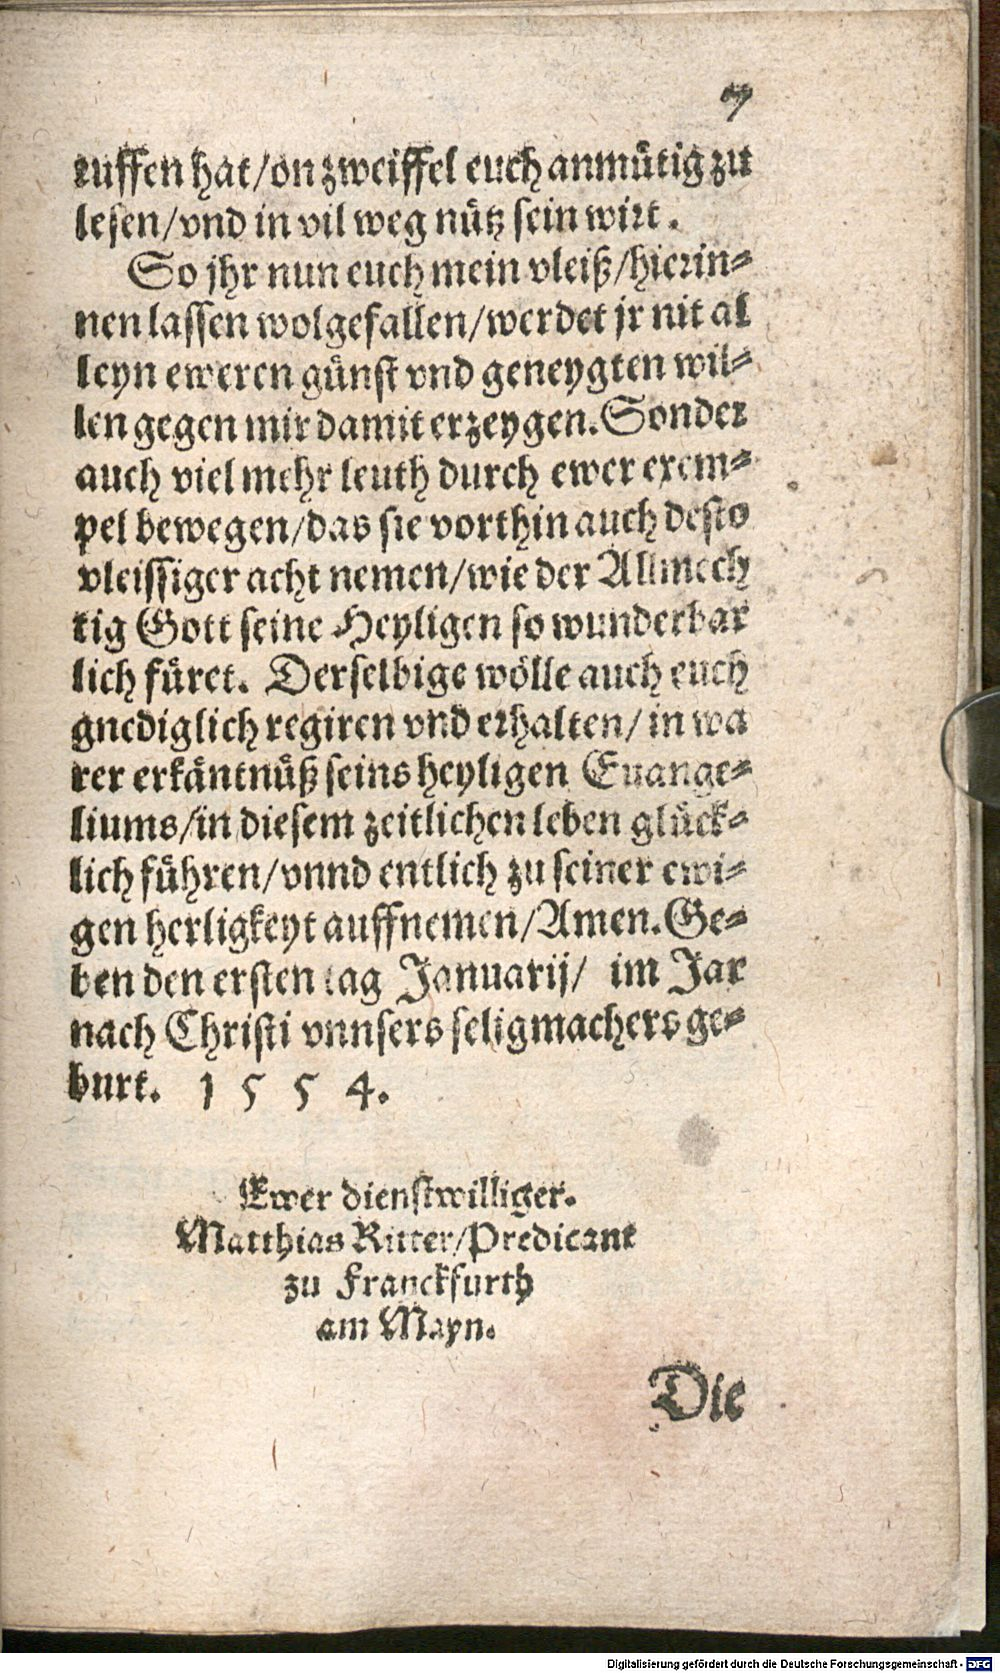 7
ruffen hat/on zweiffel euch anmůtig zu
lesen/vnd in vil weg nůtz sein wirt.
So jhr nun euch mein vleiß/hierin⸗
nen lassen wolgefallen/werdet jr nit al
leyn eweren gůnst vnd geneygten wil⸗
len gegen mir damit erzeygen. Sonder
auch viel mehr leuth durch ewer exem⸗
pel bewegen/das sie vorthin auch desto
vleissiger acht nemen/wie der Allmech
tig Gott seine Heyligen so wunderbar
lich fůret. Derselbige wölle auch euch
gnediglich regiren vnd erhalten/in wa
rer erkäntnůß seins heyligen Euange⸗
liums/in diesem zeitlichen leben glůck⸗
lich fůhren/vnnd entlich zu seiner ewi⸗
gen herligkeyt auffnemen/Amen. Ge⸗
ben den ersten tag Januarij/ im Jar
nach Christi vnnsers seligmachers ge⸗
burt. 1 5 5 4.
Ewer dienstwilliger.
Matthias Ritter/Predicant
zu Franckfurth
am Mayn.
Die
Digitalisierung gefördert durch die Deutsche Forschungsgemeinschaft - DFG